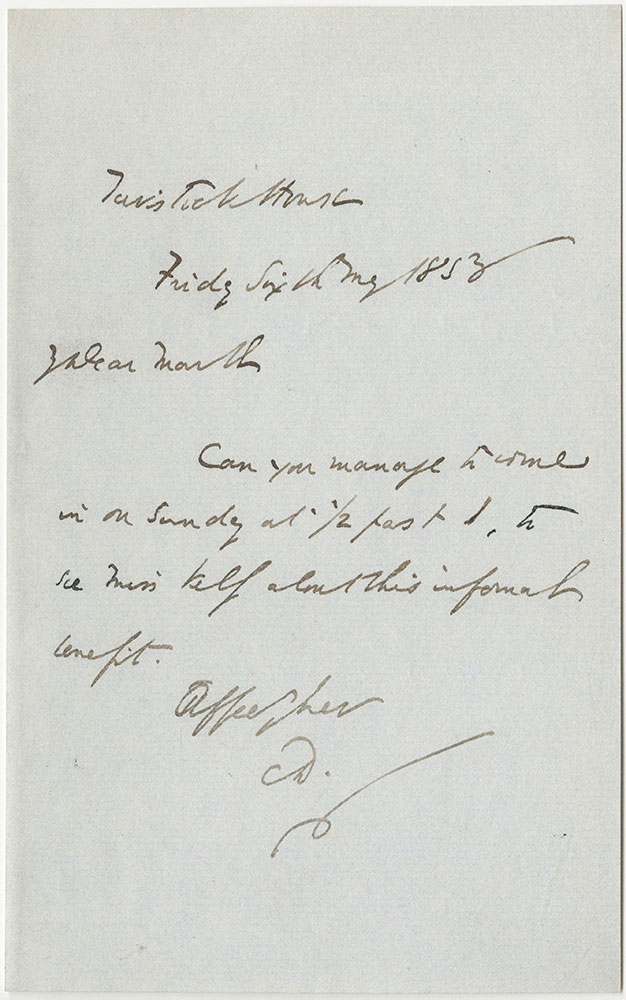 Tavistock House
Friday Sixth May 1853
My Dear Mark
Can you manage to come
in on Sunday at ½ past 1, to
see Miss Kelly about this infernal
benefit.
Affecy Ever
CD.